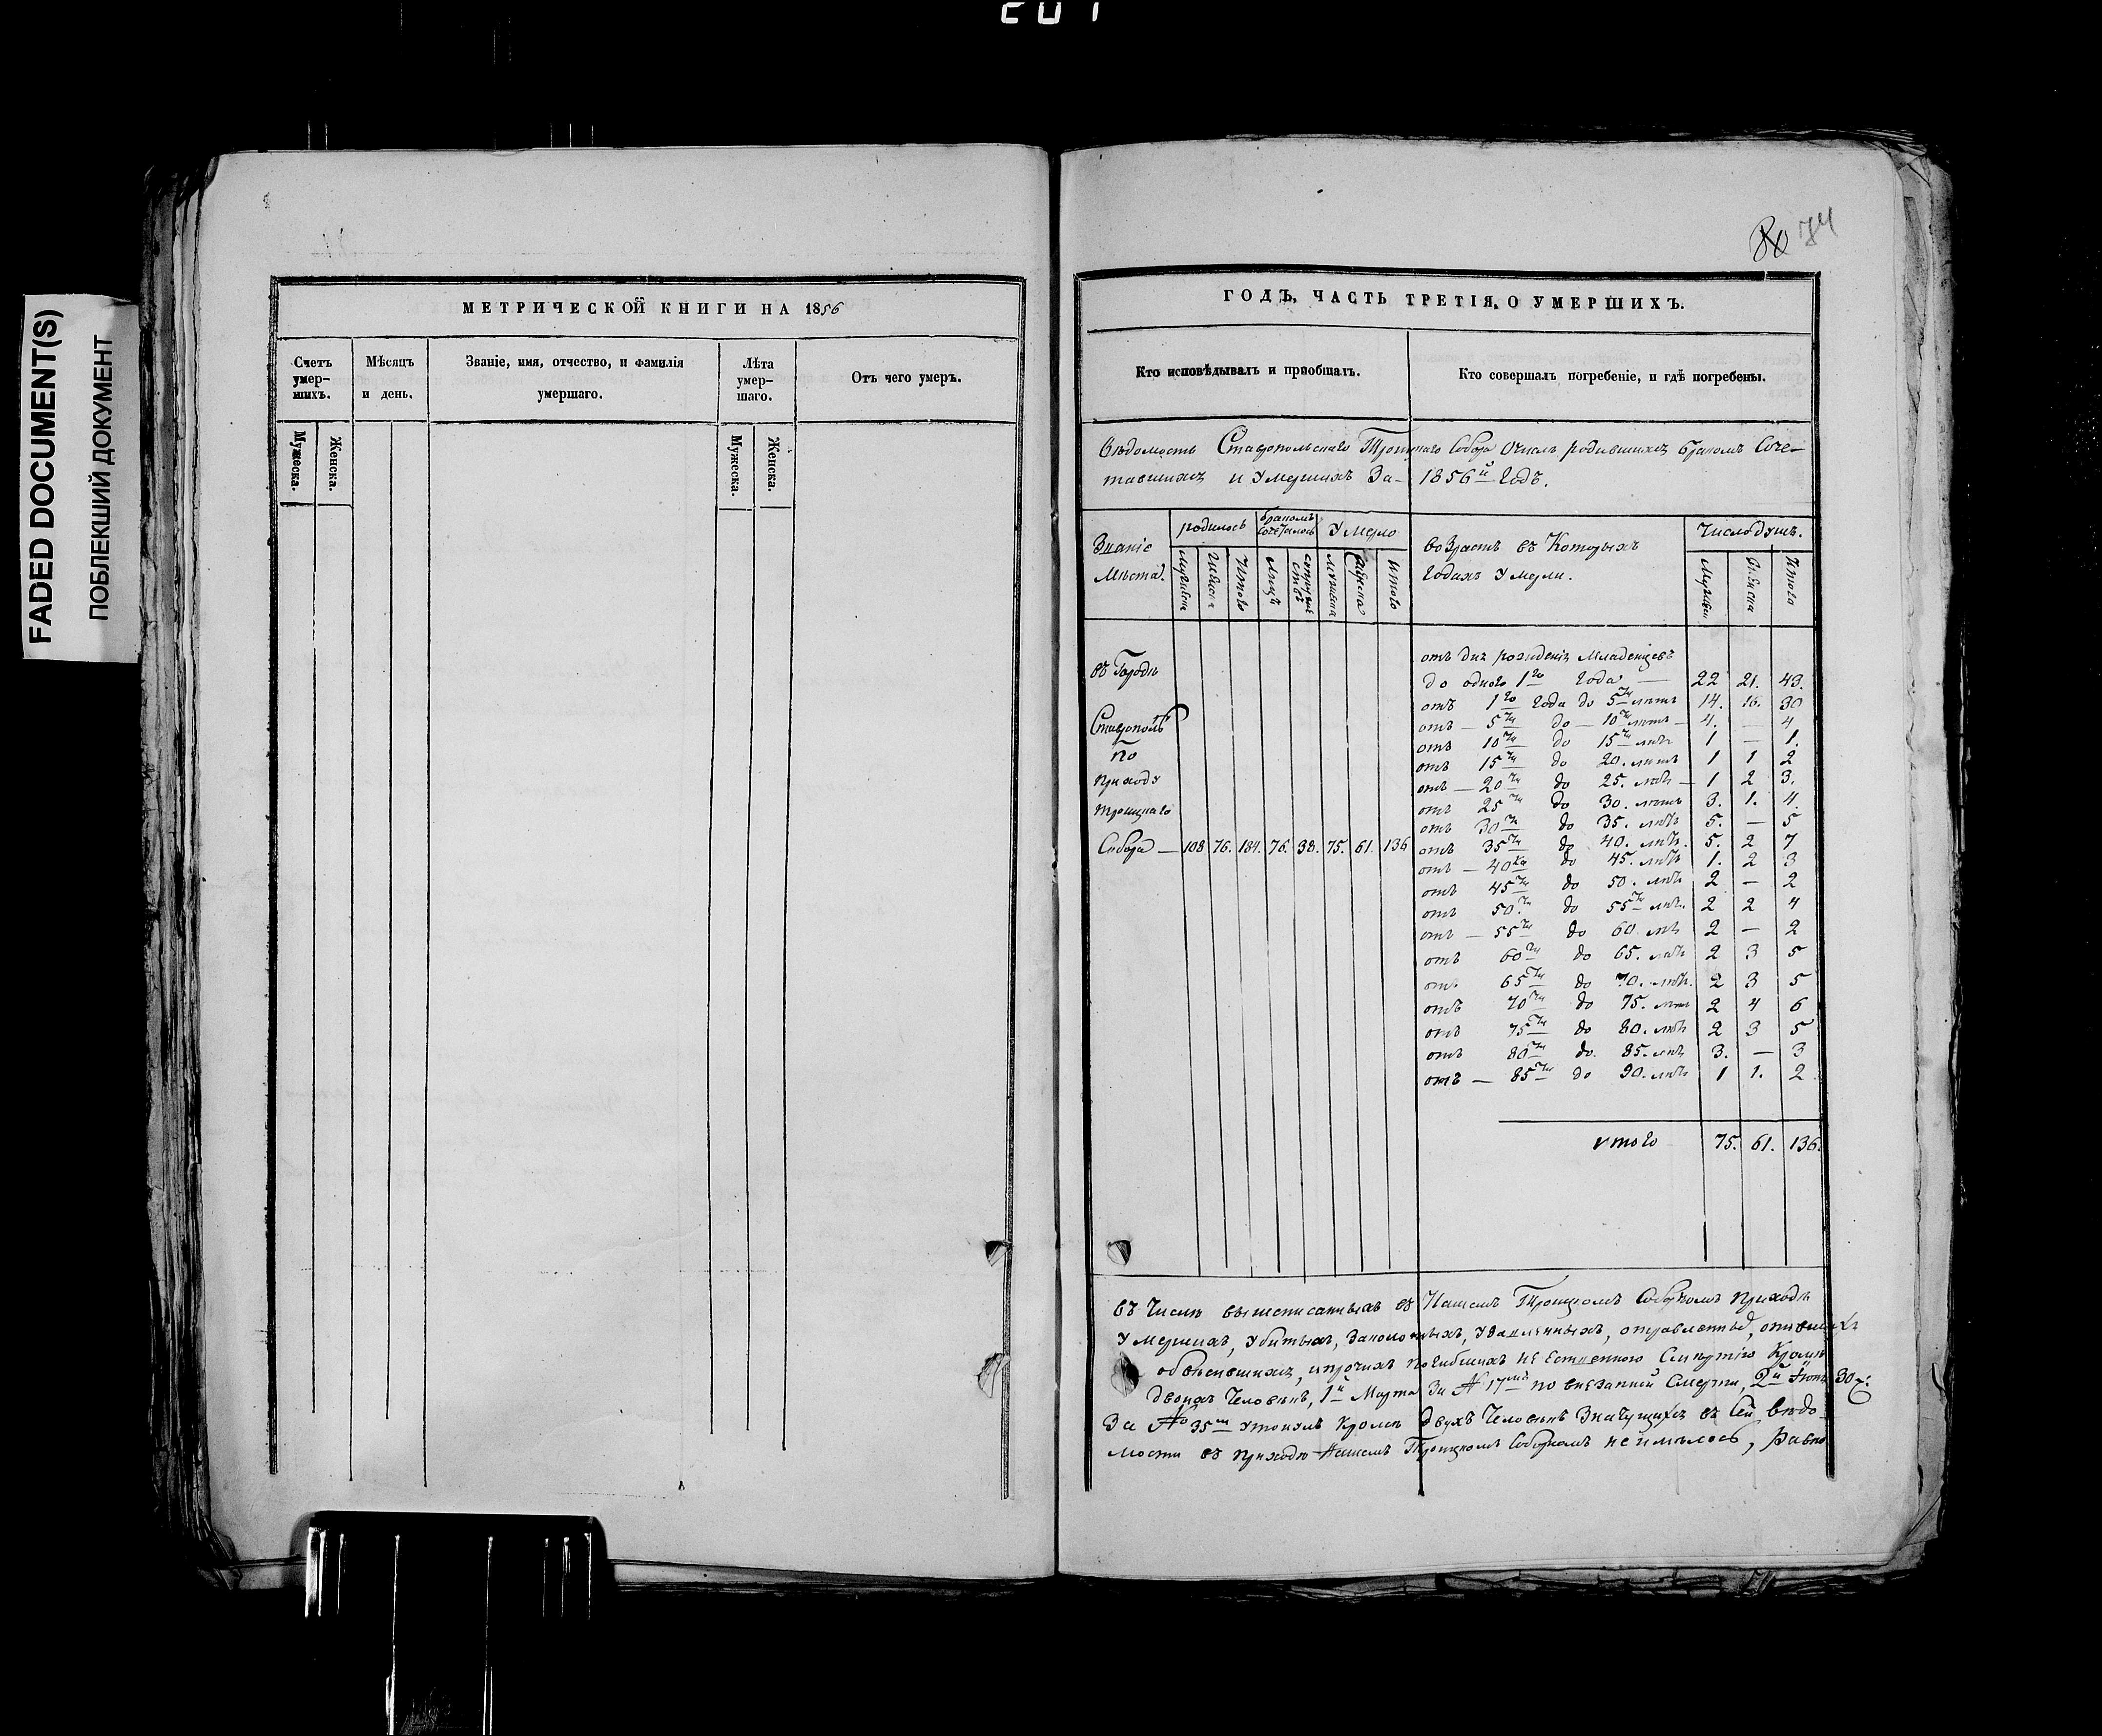 FADED DOCUMENT(S)
ПОБЛЕКШИЙ ДОКУМЕНТ
МЕТРИЧЕСКОЙ КНИГИ НА 1856
Счетъ умер-шихъ.
Мужеска.
Женска.
Мѣсяцъ и день.
Званіе, имя, отчество, и фамилія умершаго.
Лѣта умер-шаго.
Мужеска.
Женска.
Отъ чего умеръ.
80 74
ГОДЪ, ЧАСТЬ ТРЕТІЯ, О УМЕРШИХЪ.
Кто исповѣдывалъ и пріобщалъ.
Кто совершалъ погребеніе, и гдѣ погребены.
Вѣдомость Ставропольскаго Троицкаго Собора О числѣ родившихся бракомъ Соче-
тавшихся и Умершихъ За 1856й Годъ.
Званіе Мѣста.
родилось
Мужеска
Женска
Итого
бракомъ сочеталось
Лицъ
супружествъ
Умерло
мужеска
женска
итого
возрастъ въ Которыхъ
Годахъ Умерли.
Число душъ.
Мужеска
Женска
Итого
въ Городѣ
Ставрополѣ
по
Приходу
Троицкаго
Собора — 108 76. 184. 76. 38. 75. 61. 136
отъ дня рожденія Младенцевъ
до одного 1го Года — 22 21. 43.
отъ 1го Года до 5ти лѣтъ 14. 16. 30
отъ — 5ти до — 10ти лѣтъ — 4. — 4
отъ 10ти до 15ти лѣтъ 1 — 1.
отъ 15ти до 20. лѣтъ 1 1 2
отъ — 20ти до 25. лѣтъ — 1 2 3.
отъ 25ти до 30. лѣтъ 3. 1. 4.
отъ 30ти до 35. лѣтъ 5. — 5
отъ 35ти до 40. лѣтъ. 5. 2 7
отъ — 40ка до 45. лѣтъ 1. 2 3
отъ 45ти до 50. лѣтъ 2 — 2
отъ 50.ти до 55ти лѣтъ. 2 2 4
отъ — 55ти до 60. лѣтъ 2 — 2
отъ 60ти до 65. лѣтъ 2 3 5
отъ 65ти до 70. лѣтъ. 2 3 5
отъ 70ти до 75. лѣтъ 2 4 6
отъ 75ти до 80. лѣтъ 2 3 5
отъ 80ти до. 85. лѣтъ 3. — 3
отъ — 85ти до 90. лѣтъ 1 1. 2
итого 75. 61. 136.
въ Числѣ вышеписанныхъ въ Нашемъ Троицкомъ Соборномъ приходѣ
Умершихъ, Убитыхъ, Заколотыхъ, Удавленныхъ,
обвѣсившихся, и прочихъ погибшихъ Кромѣ
двоихъ Человѣкъ, 1й Марта За № 17 по внезапной Смерти, 2й 30х:
За № 35м утонулъ Кромѣ двухъ Человѣкъ Значущихся въ Сей Вѣдо-
мости въ приходѣ Нашемъ Троицкомъ Соборномъ не имѣлось, Равно